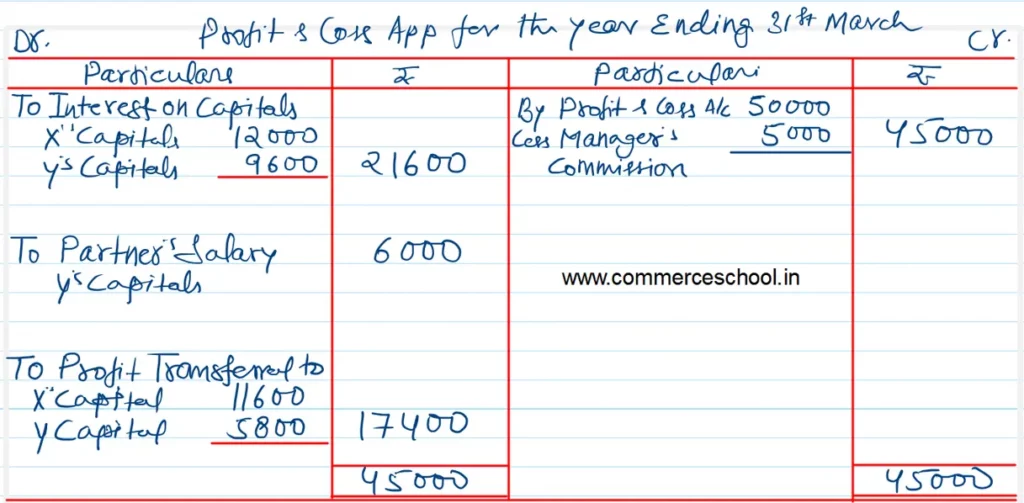 Profit & Loss App for the year Ending 31st March
Dr. Cr.
Particulars ₹ Particulars ₹
To Interest on Capitals By Profit & Loss A/c 50000
X's Capitals 12000 Less Manager's 5000 45000
Y's Capitals 9600 21600 Commission
To Partner's Salary 6000
Y's Capitals
www.commerceschool.in
To Profit Transferred to
X's Capital 11600
Y Capital 5800 17400
45000 45000